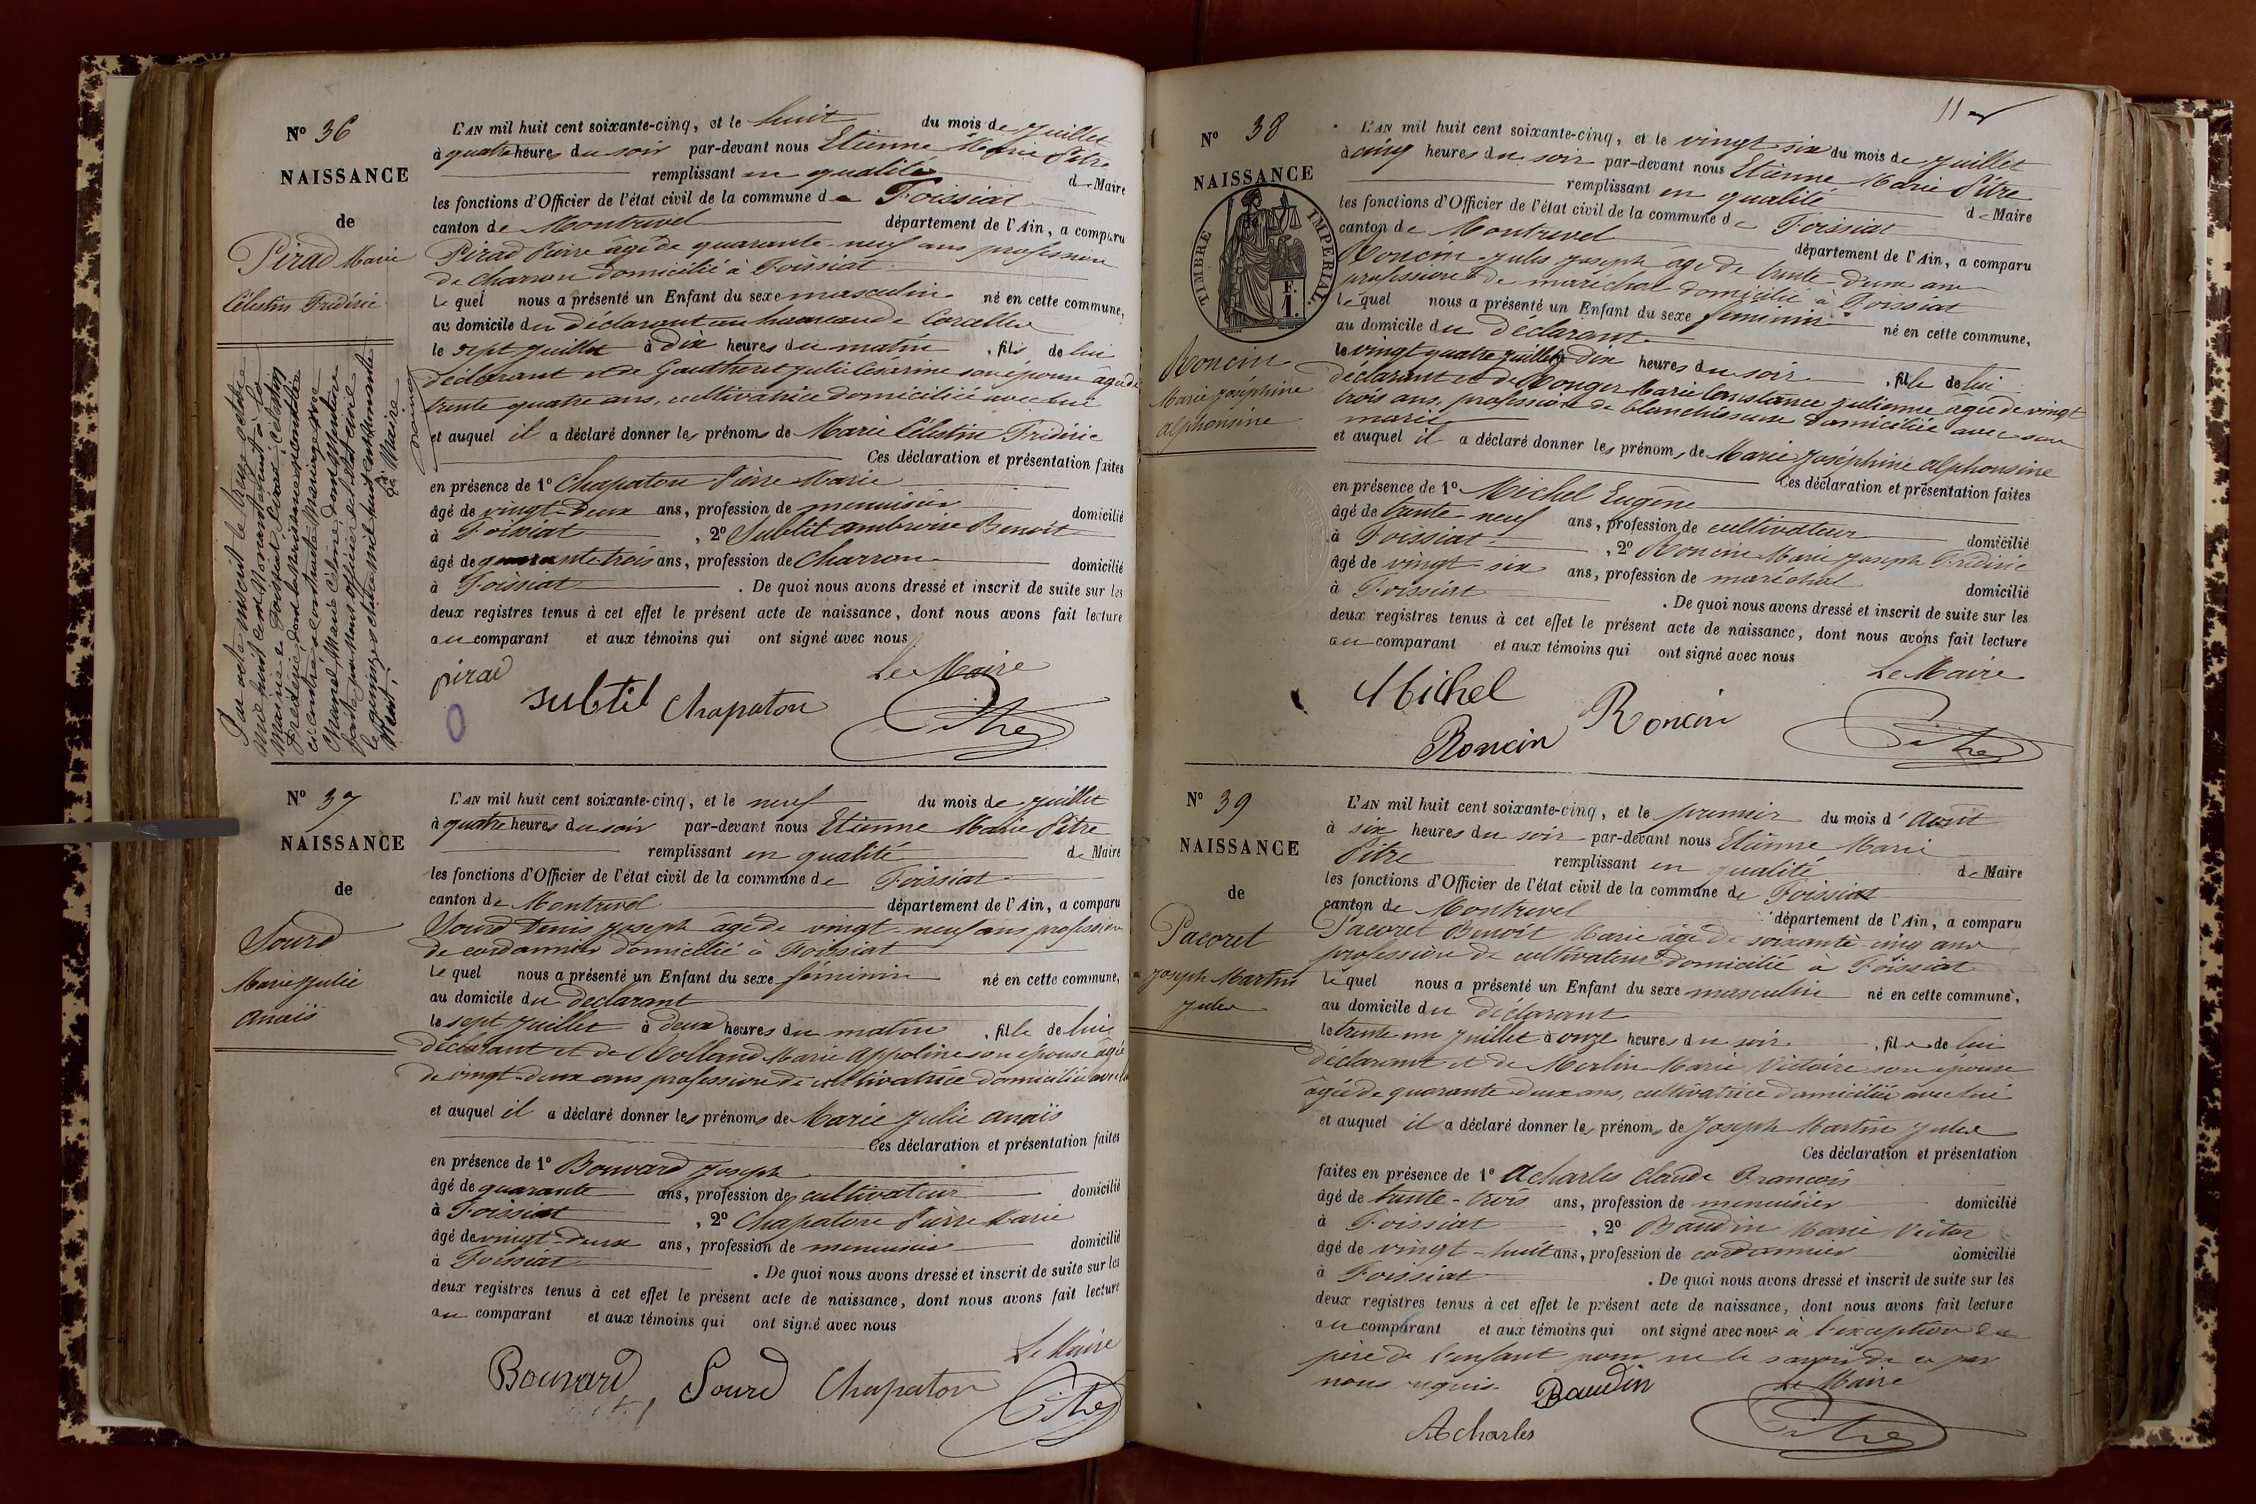 N° 36
NAISSANCE
de
Pirad Marie
Célestin Frédéric
L'AN mil huit cent soixante-cinq, et le huit du mois de Juillet
à quatre heures du soir par-devant nous Etienne Marie Pitre
remplissant en qualité de Maire
les fonctions d'Officier de l'état civil de la commune de Foissiat
canton de Montrevel département de l'Ain, a comparu
Pirad Pierre âgé de quarante-neuf ans profession
de charron domicilié à Foissiat
Lequel nous a présenté un Enfant du sexe masculin né en cette commune,
au domicile du déclarant au hameau de Corcelles
le sept Juillet à dix heures du matin, fils de lui
déclarant et de Gautheret Julie son épouse âgée de
trente quatre ans, cultivatrice domiciliée avec lui
et auquel il a déclaré donner les prénoms de Marie Célestin Frédéric
Ces déclaration et présentation faites
en présence de 1° Chapaton Pierre Marie
âgé de vingt-deux ans, profession de menuisier domicilié
à Foissiat, 2° Subtil ambroise Benoit
âgé de quarante trois ans, profession de charron domicilié
à Foissiat. De quoi nous avons dressé et inscrit de suite sur les
deux registres tenus à cet effet le présent acte de naissance, dont nous avons fait lecture
au comparant et aux témoins qui ont signé avec nous
Le Maire
pirad
subtil Chapaton
Pitre
Par acte inscrit le
mil huit cent
Marine Pirad Marie Célestin
Frédéric,
a contracté Mariage avec
Marie
N° 37
NAISSANCE
de
Sourd
Marie Julie
Anaïs
L'AN mil huit cent soixante-cinq, et le neuf du mois de Juillet
à quatre heures du soir par-devant nous Etienne Marie Pitre
remplissant en qualité de Maire
les fonctions d'Officier de l'état civil de la commune de Foissiat
canton de Montrevel département de l'Ain, a comparu
Sourd Denis Joseph âgé de vingt-neuf ans profession
de cordonnier domicilié à Foissiat
Lequel nous a présenté un Enfant du sexe féminin né en cette commune,
au domicile du déclarant
le sept Juillet à deux heures du matin, fille de lui
déclarant et de Rolland Marie Appoline son épouse âgée
de vingt-deux ans profession de cultivatrice domiciliée avec lui
et auquel il a déclaré donner les prénoms de Marie Julie Anaïs
Ces déclaration et présentation faites
en présence de 1° Bouvard Joseph
âgé de quarante ans, profession de cultivateur domicilié
à Foissiat, 2° Chapaton Pierre Marie
âgé de vingt-deux ans, profession de menuisier domicilié
à Foissiat. De quoi nous avons dressé et inscrit de suite sur les
deux registres tenus à cet effet le présent acte de naissance, dont nous avons fait lecture
au comparant et aux témoins qui ont signé avec nous
Le Maire
Bouvard Sourd Chapaton
Pitre
11
N° 38
NAISSANCE
de
TIMBRE IMPÉRIAL
F.
1.
Roncin
Marie Joséphine
alphonsine
L'AN mil huit cent soixante-cinq, et le vingt six du mois de Juillet
à cinq heures du soir par-devant nous Etienne Marie Pitre
remplissant en qualité de Maire
les fonctions d'Officier de l'état civil de la commune de Foissiat
canton de Montrevel département de l'Ain, a comparu
Roncin Jules Joseph âgé de trente deux ans
profession de maréchal domicilié à Foissiat
Lequel nous a présenté un Enfant du sexe féminin né en cette commune,
au domicile du déclarant
le vingt quatre Juillet à dix heures du soir, fille de lui
déclarant et de Rouger Marie Constance Julienne âgée de vingt
trois ans, profession de blanchisseuse domiciliée avec son
mari
et auquel il a déclaré donner les prénoms de Marie Joséphine alphonsine
Ces déclaration et présentation faites
en présence de 1° Michel Eugène
âgé de trente-neuf ans, profession de cultivateur domicilié
à Foissiat, 2° Roncin Marie Joseph Frédéric
âgé de vingt-six ans, profession de maréchal domicilié
à Foissiat. De quoi nous avons dressé et inscrit de suite sur les
deux registres tenus à cet effet le présent acte de naissance, dont nous avons fait lecture
au comparant et aux témoins qui ont signé avec nous
Le Maire
Michel
Roncin Roncin
Pitre
N° 39
NAISSANCE
de
Pacoret
Joseph Martin
Jules
L'AN mil huit cent soixante-cinq, et le premier du mois d'Août
à six heures du soir par-devant nous Etienne Marie
Pitre remplissant en qualité de Maire
les fonctions d'Officier de l'état civil de la commune de Foissiat
canton de Montrevel département de l'Ain, a comparu
Pacoret Benoît Marie âgé de soixante-cinq ans
profession de cultivateur domicilié à Foissiat
Lequel nous a présenté un Enfant du sexe masculin né en cette commune,
au domicile du déclarant
le trente un Juillet à onze heures du soir, fils de lui
déclarant et de Merlin Marie Victoire son épouse
âgée de quarante deux ans, cultivatrice domiciliée avec lui
et auquel il a déclaré donner les prénoms de Joseph Martin Jules
Ces déclaration et présentation
faites en présence de 1° Acharles Claude François
âgé de trente-trois ans, profession de menuisier domicilié
à Foissiat, 2° Baudin Marie Victor
âgé de vingt-huit ans, profession de cordonnier domicilié
à Foissiat. De quoi nous avons dressé et inscrit de suite sur les
deux registres tenus à cet effet le présent acte de naissance, dont nous avons fait lecture
au comparant et aux témoins qui ont signé avec nous à l'exception du
père de l'enfant pour ne le savoir de ce par
nous requis.
Le Maire
Baudin
Acharles
Pitre